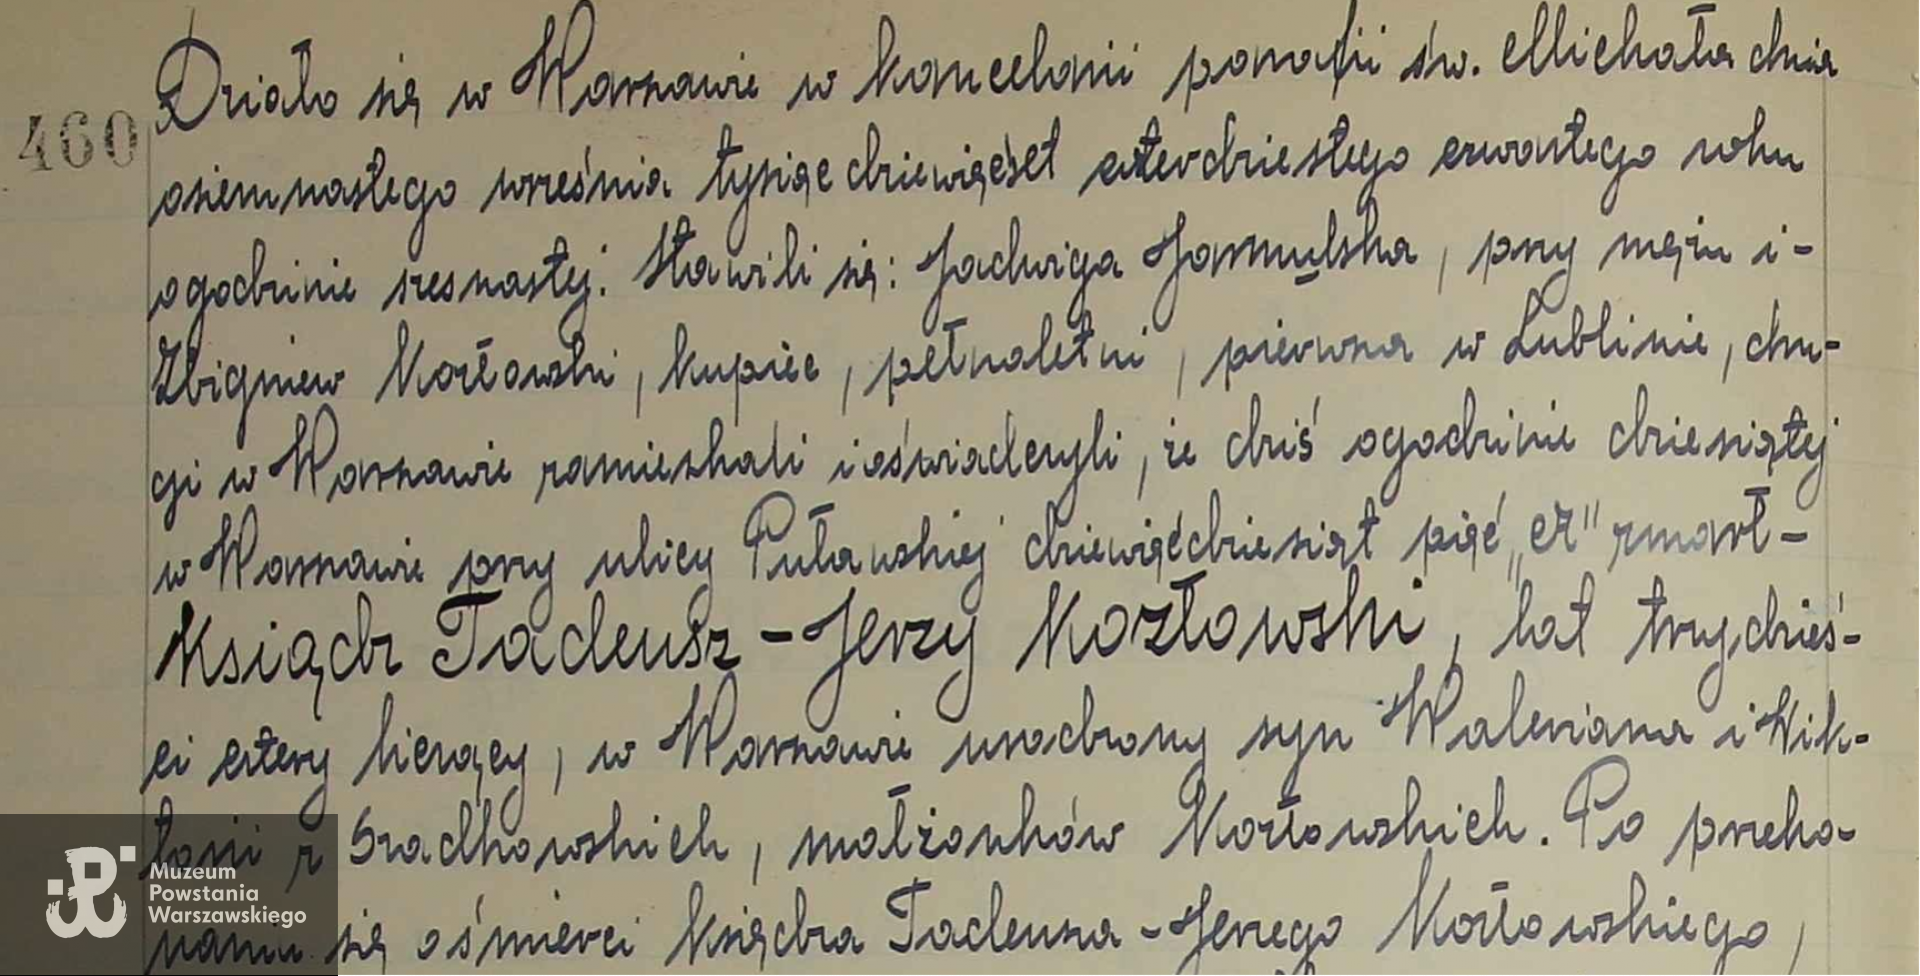 Działo się w Warszawie w kancelarii parafii św. Michała dnia
460
osiemnastego września tysiąc dziewięćset czterdziestego czwartego roku
o godzinie szesnastej. Stawili się: Jadwiga Jamulska, przy mężu i -
Zbigniew Kozłowski, kupiec, pełnoletni, pierwsza w Lublinie, dru-
gi w Warszawie zamieszkali i oświadczyli, że dziś o godzinie dziesiątej
w Warszawie przy ulicy Puławskiej dziewięćdziesiąt pięć „cz" zmarł -
Ksiądz Tadeusz - Jerzy Kozłowski, lat trzydzieś-
ci cztery liczący, w Warszawie urodzony syn Waleriana i Wik-
torii z Sradkowskich, małżonków Kozłowskich. Po przeko-
naniu się o śmierci Księdza Tadeusza - Jerzego Kozłowskiego,
Muzeum
Powstania
Warszawskiego